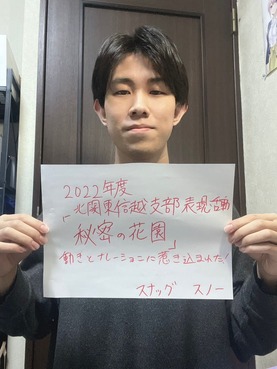 2022年度
「北関東信越支部表現活動
秘密の花園」
動きとナレーションに惹き込まれた!
スナッグ　スノー